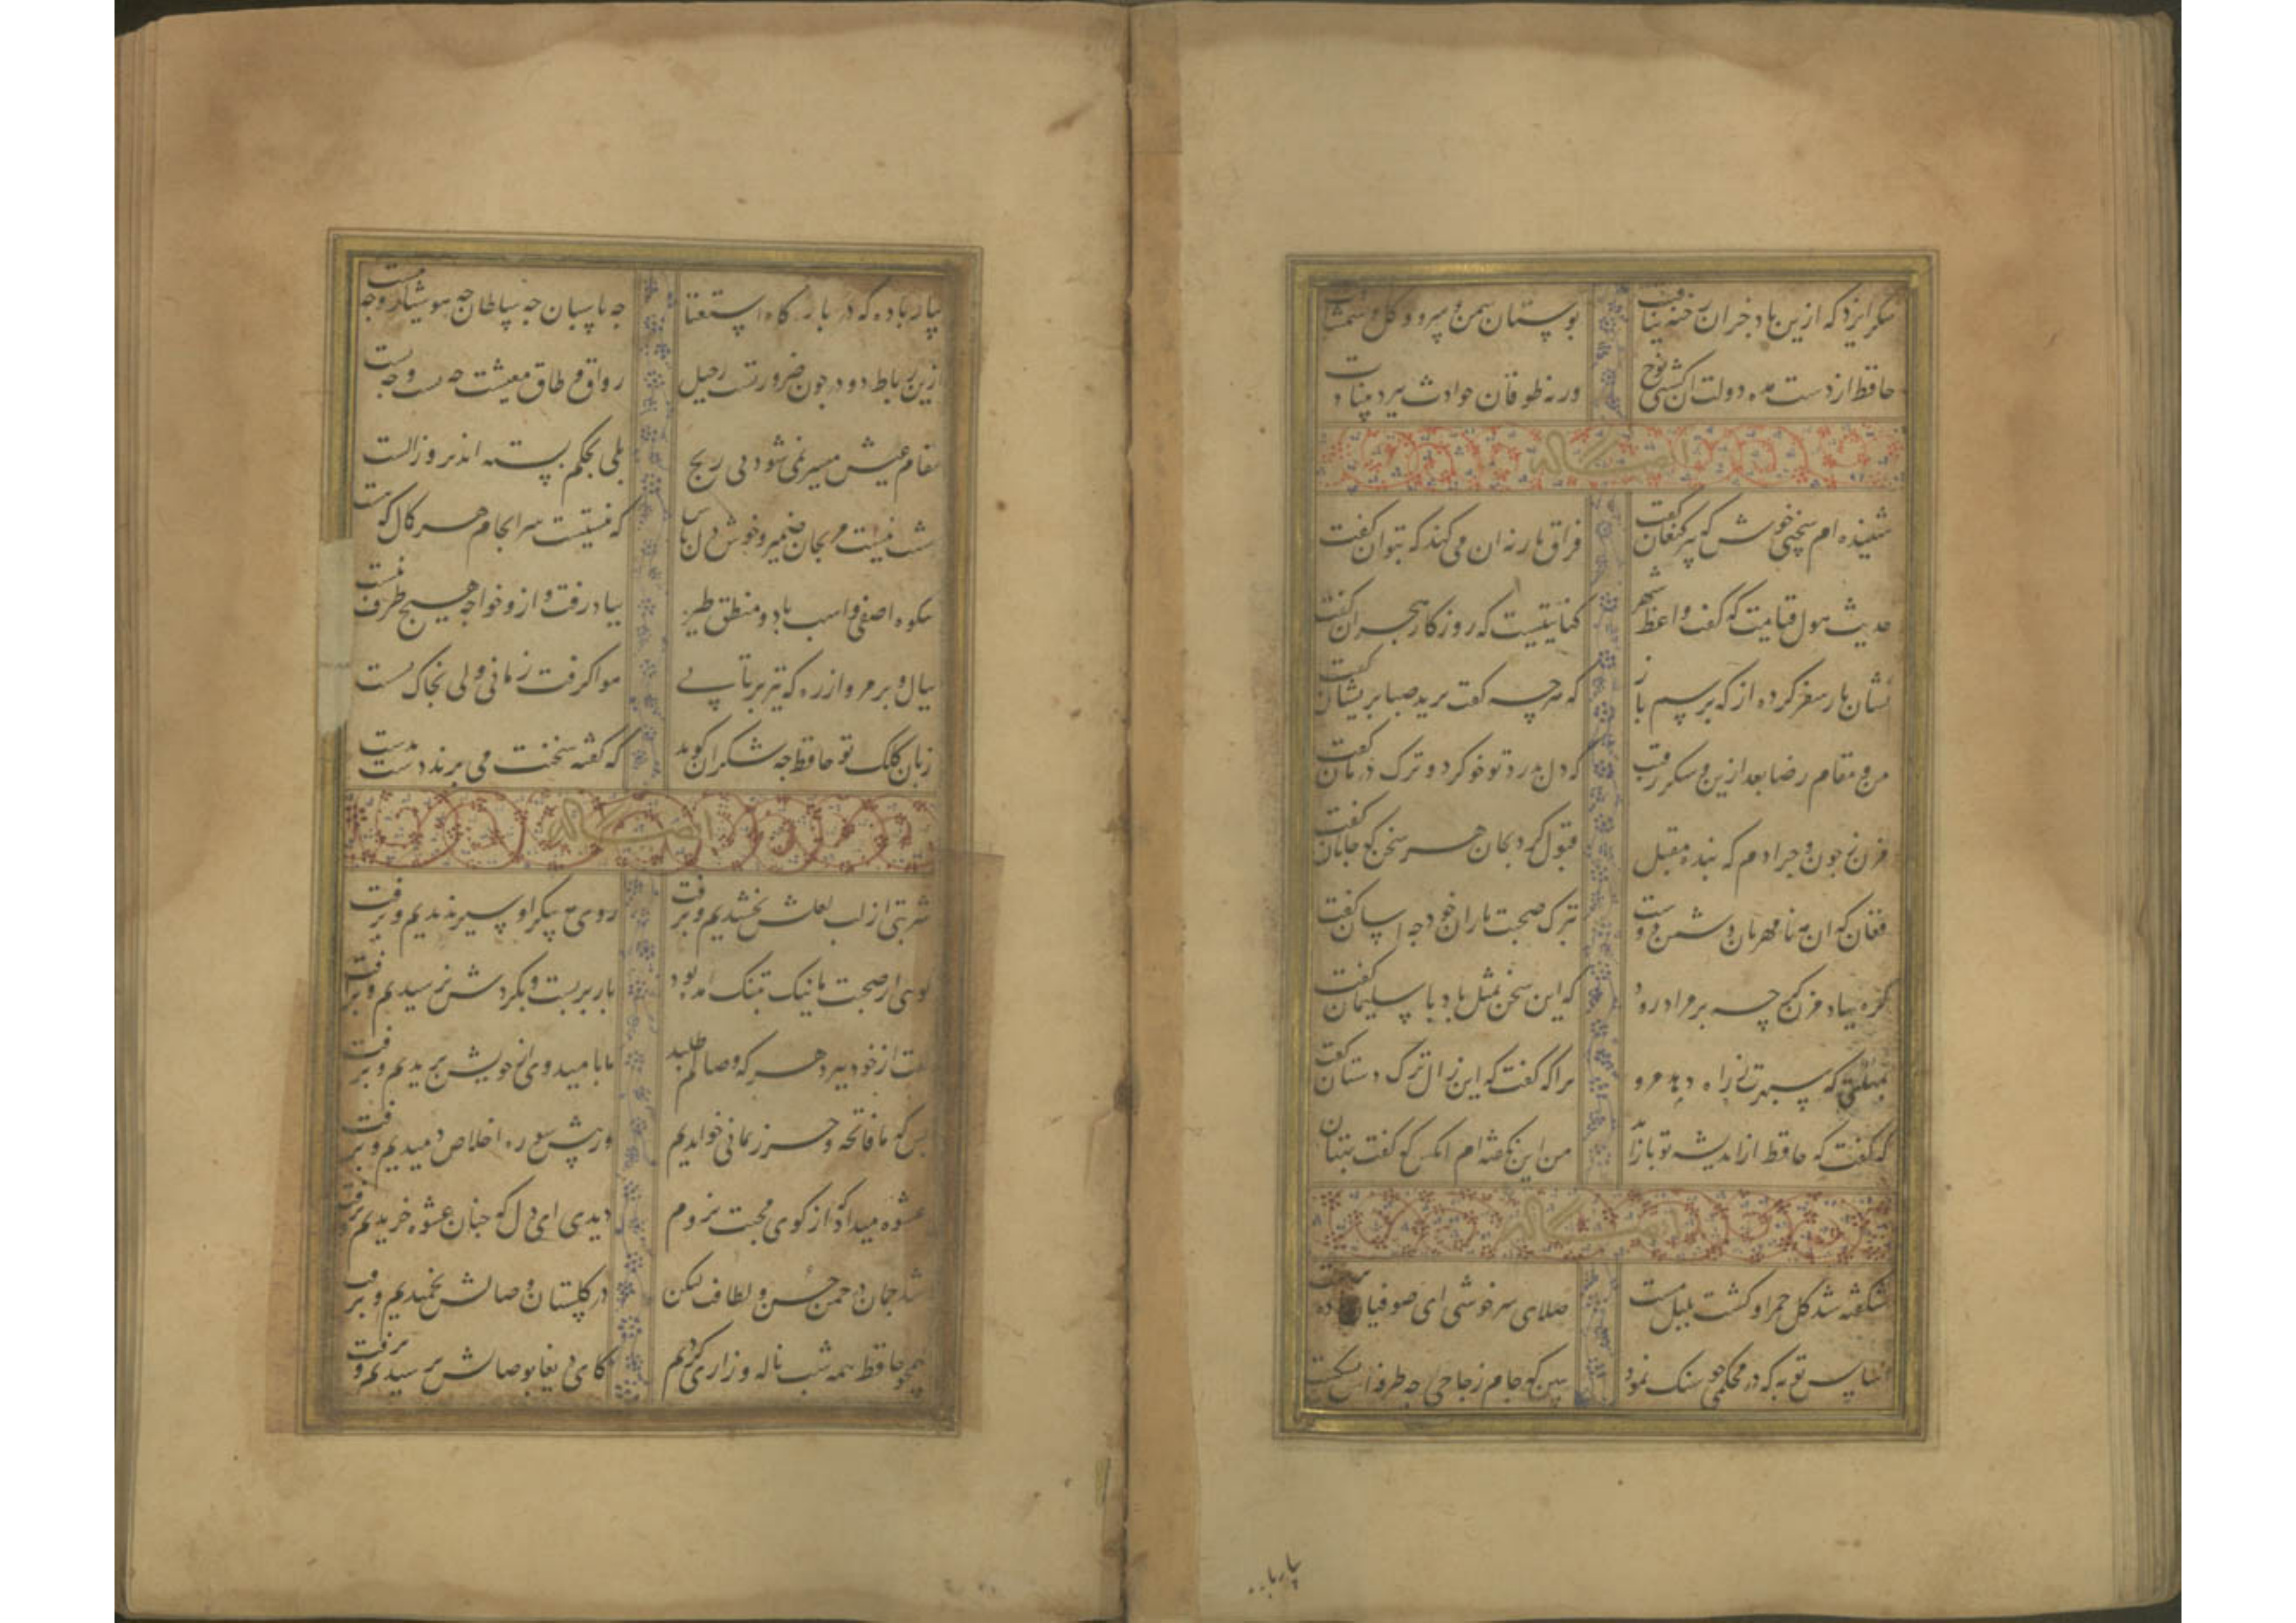 شکر ایزد که ازین باد خزان رخنه نیافت بوستان سمن و سرو و کل و شمشادت
حافظ از دست مده دولت ان کشتی نوح ورنه طوفان حوادث ببرد بنیادت
شنیده ام سخنی خوش که پیر کنعان کفت فراق یار نه ان می کند که بتوان کفت
حدیث هول قیامت که کفت واعظ شهر کنایتیست که روزکار هجران کفت
نشان یار سفر کرده از که پرسم باز که هرچه کفت برید صبا پریشان کفت
من و مقام رضا بعد ازین و شکر رقیب که دل بدرد تو خو کرد و ترک درمان کفت
مزن ز چون و چرا دم که بنده مقبل قبول کرد بجان هر سخن که جانان کفت
فغان که ان مه نامهربان دشمن دوست بترک صحبت یاران خود چه اسان کفت
کره بباد مزن کرچه بر مراد رود که این سخن بمثل باد با سلیمان کفت
بمهلتی که سپهرت دهد ز راه مرو ترا که کفت که این زال ترک دستان کفت
که کفت که حافظ از اندیشه تو باز امد من این نکفته ام انکس که کفت بهتان
شکفته شد کل حمرا و کشت بلبل مست صلای سرخوشی ای صوفیان
اساس توبه که در محکمی چو سنک نمود ببین که جام زجاجی چه طرفه اش بشکست
بیار باده که در بارکاه استغنا چه پاسبان چه سلطان چه هوشیار و چه مست
ازین رباط دو در چون ضرورتست رحیل رواق و طاق معیشت چه
مقام عیش میسر نمی شود بی رنج بلی بحکم بسته اند روز الست
مرنجان ضمیر و خوش دل باش که نیستیست سرانجام هر کمال که هست
شکوه اصفی و اسب باد و منطق طیر بباد رفت و ازو خواجه هیچ طرف نبست
ببال و پر مرو از ره که تیر پرتابی هوا کرفت زمانی ولی بخاک نشست
زبان کلک تو حافظ چه شکر ان کوید که کفته سخنت می برند دست بدست
شربتی از لب لعلش نچشیدیم و برفت روی مه پیکر او سیر ندیدیم و برفت
کویی از صحبت ما نیک بتنک امده بود بار بربست و بکردش نرسیدیم و برفت
کفت از خود ببرد هرکه وصالم طلبد ما بامید وی از خویش بریدیم و برفت
بس که ما فاتحه و حرز یمانی خواندیم وز پیش سوره اخلاص دمیدیم و برفت
عشوه میداد که از کوی محبت نروم دیدی ای دل که چنان عشوه خریدیم و برفت
شد چمان در چمن حسن و لطافت لیکن در کلستان وصالش نچمیدیم و برفت
همچو حافظ همه شب ناله و زاری کردیم کای دریغا بوصالش نرسیدیم و برفت